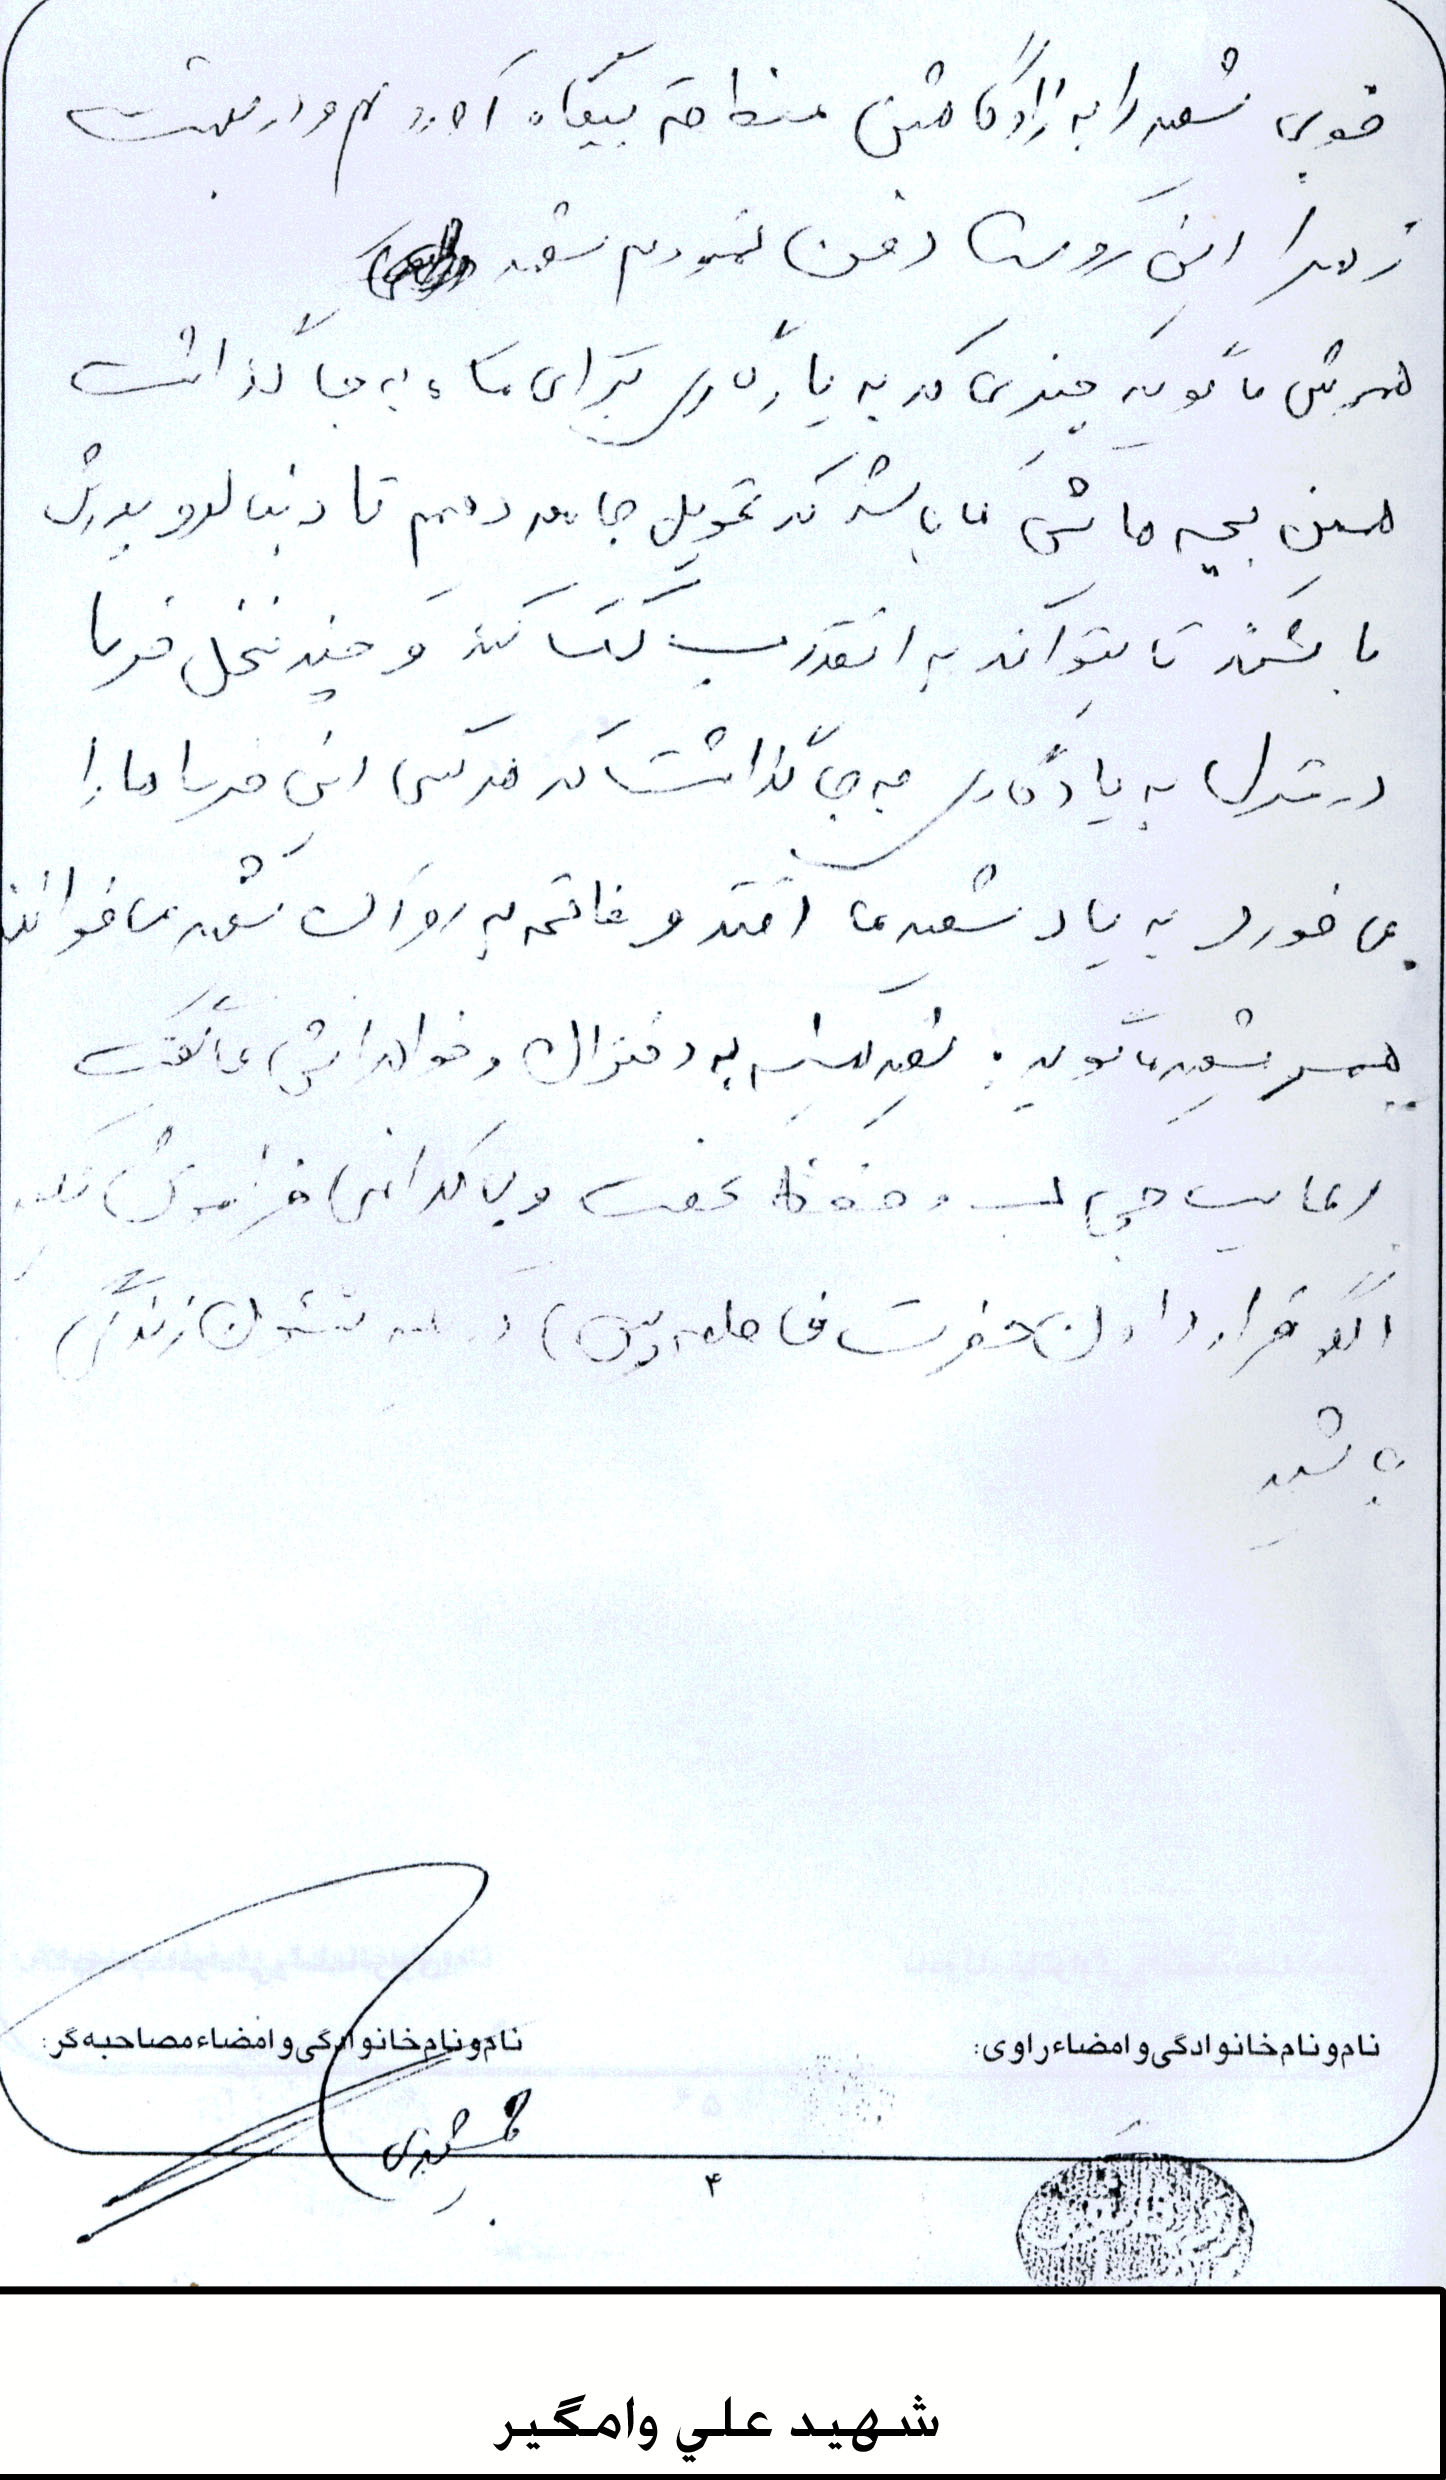 خونی شهید را به زادگاهش منطقه بیکاه آوردیم و در بهشت
زهرا این روستا دفن نمودیم شهید
همسرش می گوید چیزی که به یادگاری برای ما به جا گذاشت
همین بچه هاش می باشد که تحویل جامعه دهیم تا دنبالرو پدرش
باشند تا بتوانند به انقلاب کمک کنند و چند نخل خرما
در منزل به یادگاری به جا گذاشت که هر کس این خرما ها را
می خورد به یاد شهید می افتد و فاتحه به روان شهید می خوانند
همسر شهید می گوید: شهید همیشه به دختران و خواهرانش می گفت
رعایت حجاب و حفظ عفت و پاکدامنی فراموش نکنید
الگو قرار دادن حضرت فاطمه (س) در همه شئون زندگی
باشید
نام و نام خانوادگی و امضاء راوی:
نام و نام خانوادگی و امضاء مصاحبه گر:
۴
شهيد علي وامگير